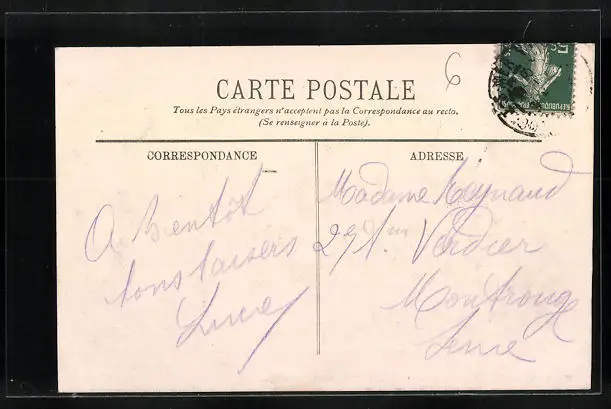 6
CARTE POSTALE
Tous les Pays étrangers n'acceptent pas la Correspondance au recto.
(Se renseigner à la Poste).
CORRESPONDANCE
ADRESSE
A Bientôt
bons baisers
Madame Reynaud
Verdier
Montrouge
Seine
REPUBLIQUE FRANÇAISE